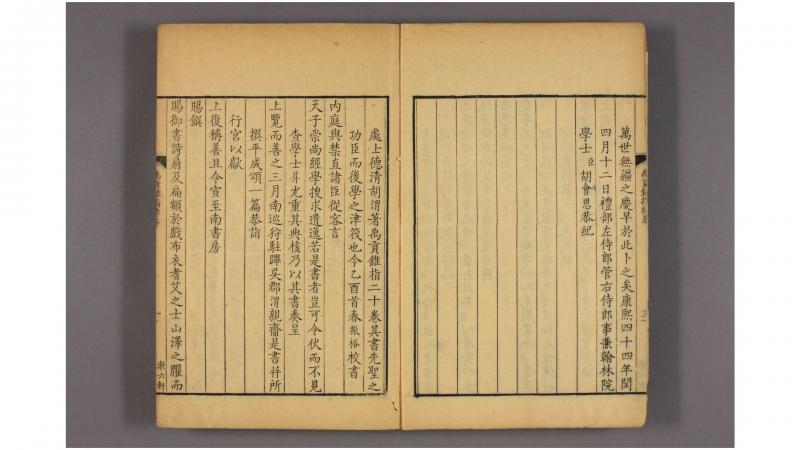 萬世無疆之慶早於此卜之矣康熙四十四年閏
四月十二日禮部左侍郎管右侍郎事兼翰林院
學士臣胡會恩恭紀
處士德清胡渭著禹貢錐指二十卷其書先聖之
功臣而後學之津筏也今乙酉首春振裕校書
內庭與禁直諸臣從容言
天子崇尚經學搜求遺逸若是書者豈可令伏而不見
查學士昇尤重其典核乃以其書奏呈
上覽而善之三月南巡狩駐蹕吳郡渭親齋是書并所
撰平成頌一篇恭詣
行宮以獻
上復稱善且令宣至南書房
賜饌
賜御書詩扇及扁額於戲布衣耆艾之士山澤之臞而
漱六軒